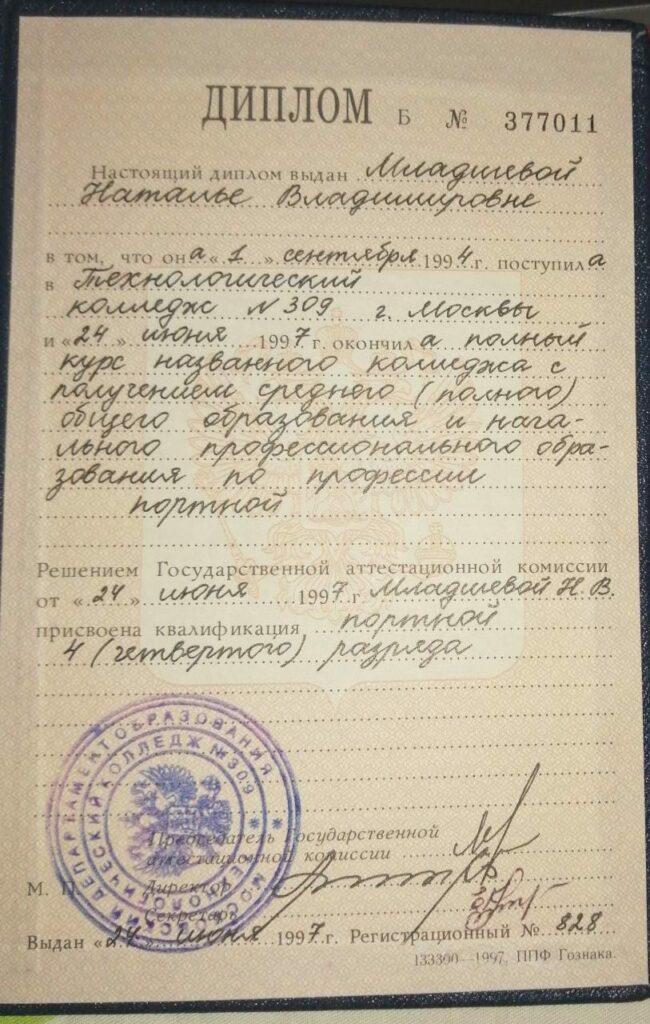 ДИПЛОМ Б № 377011
Настоящий диплом выдан Младшевой
Наталье Владимировне
в том, что она «1» сентября 1994 г. поступила
в Технологический
колледж № 309 г. Москвы
и «24» июня 1997 г. окончила полный
курс названного колледжа с
получением среднего (полного)
общего образования и нача-
льного профессионального обра-
зования по профессии
портной
Решением Государственной аттестационной комиссии
от «24» июня 1997 г. Младшевой Н. В.
присвоена квалификация портной
4 (четвертого) разряда
МОСКОВСКИЙ ДЕПАРТАМЕНТ ОБРАЗОВАНИЯ
ТЕХНОЛОГИЧЕСКИЙ КОЛЛЕДЖ № 309
Председатель Государственной
аттестационной комиссии
М. П. Директор
Секретарь
Выдан «24» июня 1997 г. Регистрационный № 828
133300—1997, ППФ Гознака.